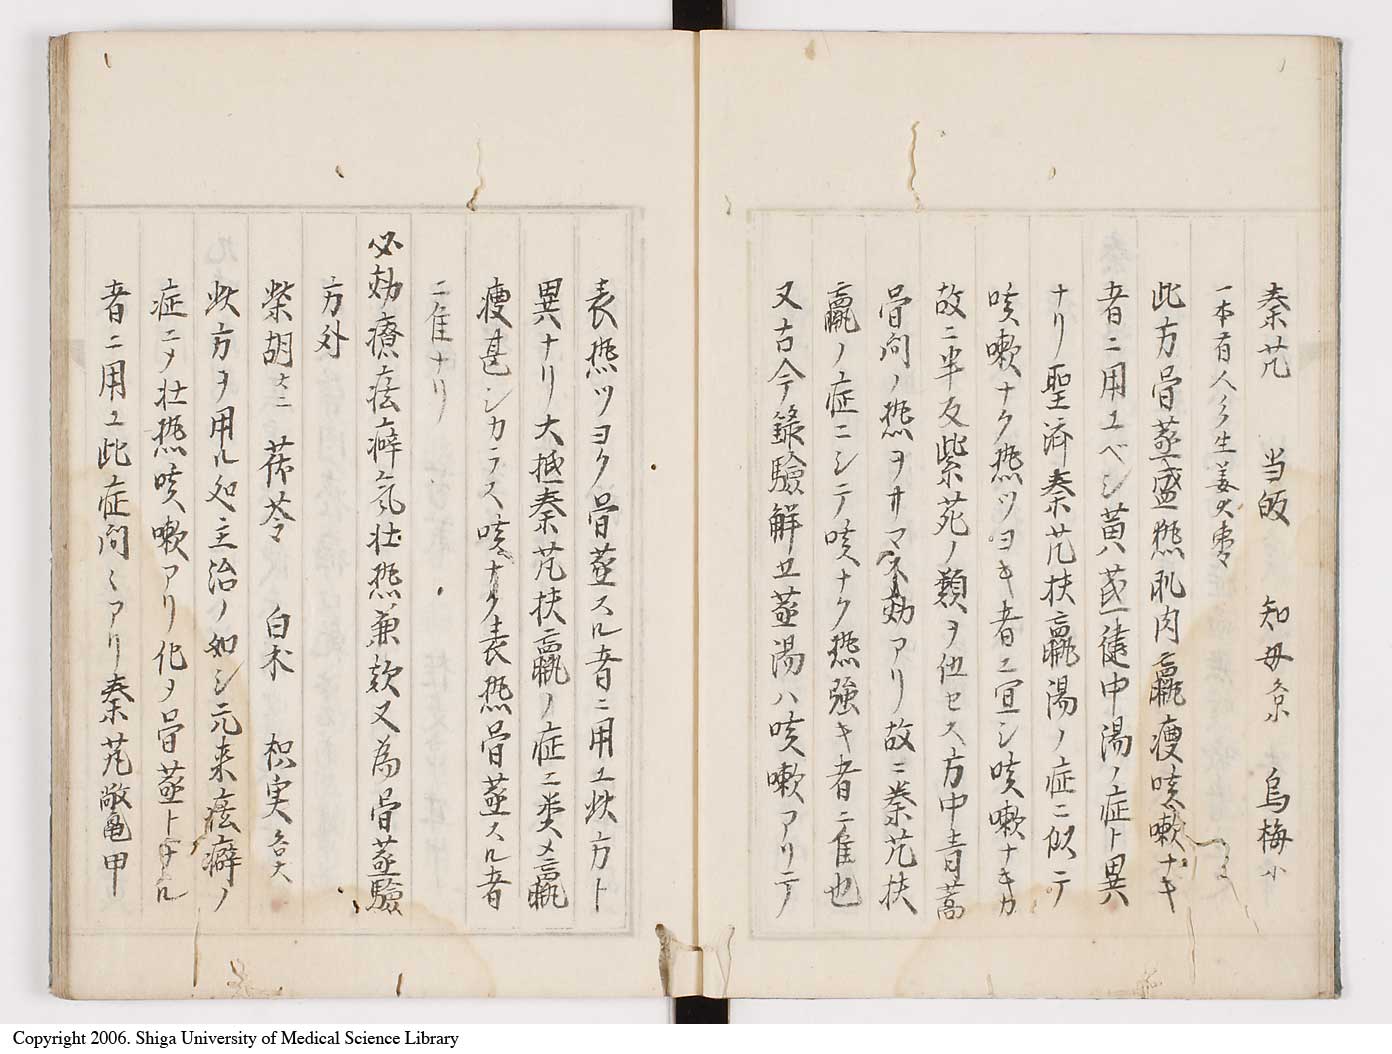 秦艽 当皈 知母各京 烏梅小
一本有人参生姜大枣
此方骨蒸盛熱肌肉羸痩咳嗽ナキ
者ニ用ユベシ黄芪建中湯ノ症ト異
ナリ聖済秦艽扶羸湯ノ症ニ似テ
咳嗽ナク熱ツヨキ者ニ宜シ咳嗽ナキカ
故ニ半夏紫苑ノ類ヲ伍セス方中青蒿
骨間ノ熱ヲサマス効アリ故ニ秦艽扶
羸ノ症ニシテ咳ナク熱強キ者ニ隹也
又古今錄驗解五蒸湯ハ咳嗽アリテ
表熱ツヨク骨蒸スル者ニ用ユ此方ト
異ナリ大抵秦艽扶羸ノ症ニ類メ羸
痩甚シカラス咳ナク表熱骨蒸スル者
ニ隹ナリ
必効療痃癖氣壮熱兼欬又為骨蒸驗
方外
柴胡大 茯苓 白朮 枳実各大
此方ヲ用ル処主治ノ如シ元来痃癖ノ
症ニメ壮熱咳嗽アリ化メ骨蒸トナル
者ニ用ユ此症間〻アリ秦艽散亀甲